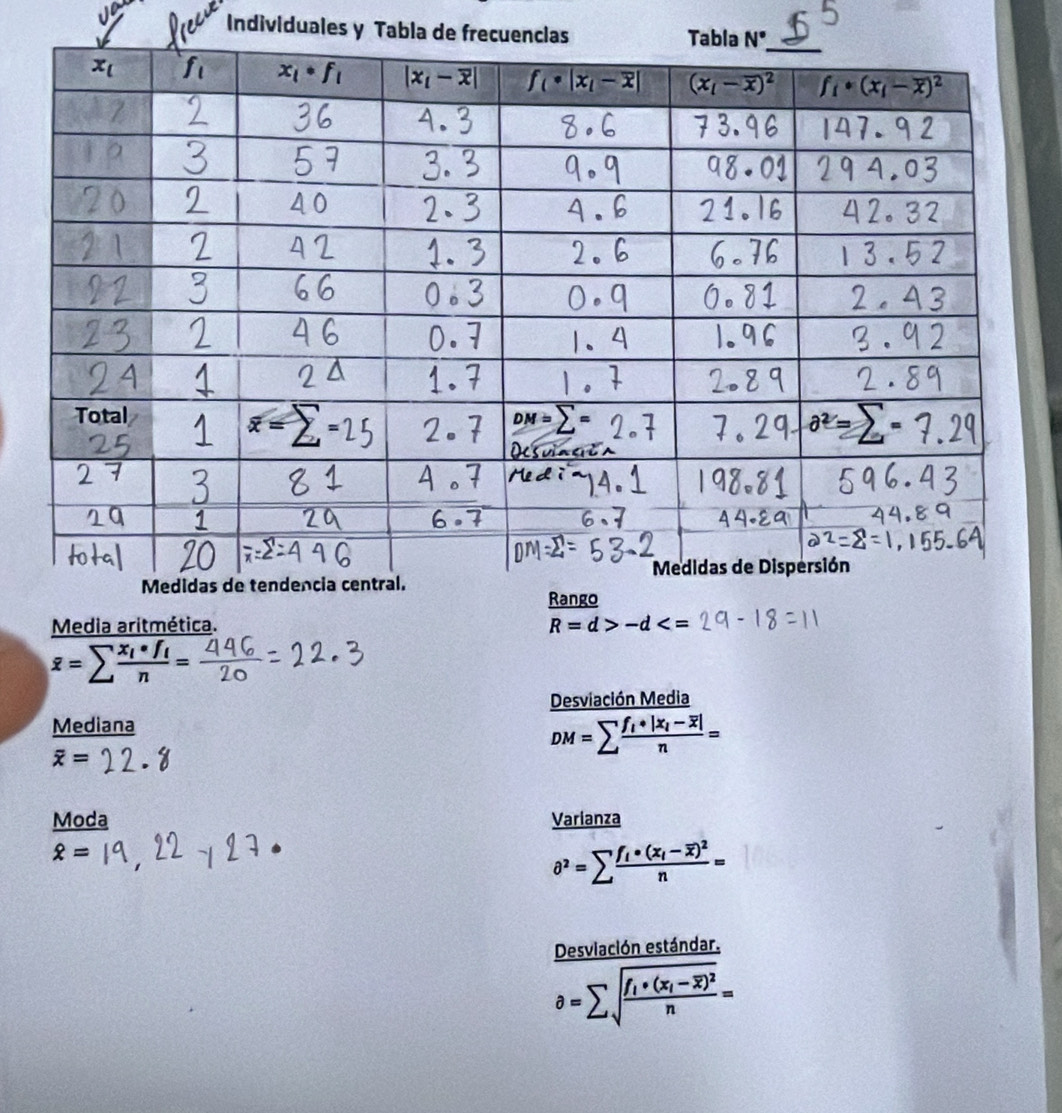 Individuales y Tabla de frecuencias Tabla N° 5 5
xᵢ fᵢ xᵢ • fᵢ |xᵢ − x̅| fᵢ • |xᵢ − x̅| (xᵢ − x̅)² fᵢ • (xᵢ − x̅)²
2 36 4.3 8.6 73.96 147.92
3 57 3.3 9.9 98.01 294.03
20 2 40 2.3 4.6 21.16 42.32
21 2 42 1.3 2.6 6.76 13.52
22 3 66 0.3 0.9 0.81 2.43
23 2 46 0.7 1.4 1.96 3.92
24 1 24 1.7 1.7 2.89 2.89
Total 25 1 x̅ = ∑ = 25 2.7 DM = ∑ = 2.7 7.29 ∂² = ∑ = 7.29
Desviación
27 3 81 4.7 Media 14.1 198.81 596.43
29 1 29 6.7 6.7 44.89 44.89
total 20 x̅=Σ=446 DM=Σ= 53.2 ∂2=Σ=1,155.64
Medidas de tendencia central. Medidas de Dispersión
Rango
Media aritmética. R = d > −d < = 29 - 18 = 11
x̅ = ∑ xᵢ • fᵢ / n = 446 / 20 = 22.3
Desviación Media
Mediana DM = ∑ fᵢ • |xᵢ − x̅| / n =
x̃ = 22.8
Moda Varianza
x̂ = 19, 22 y 27. ∂² = ∑ fᵢ • (xᵢ − x̅)² / n =
Desviación estándar.
∂ = ∑ √ fᵢ • (xᵢ − x̅)² / n =